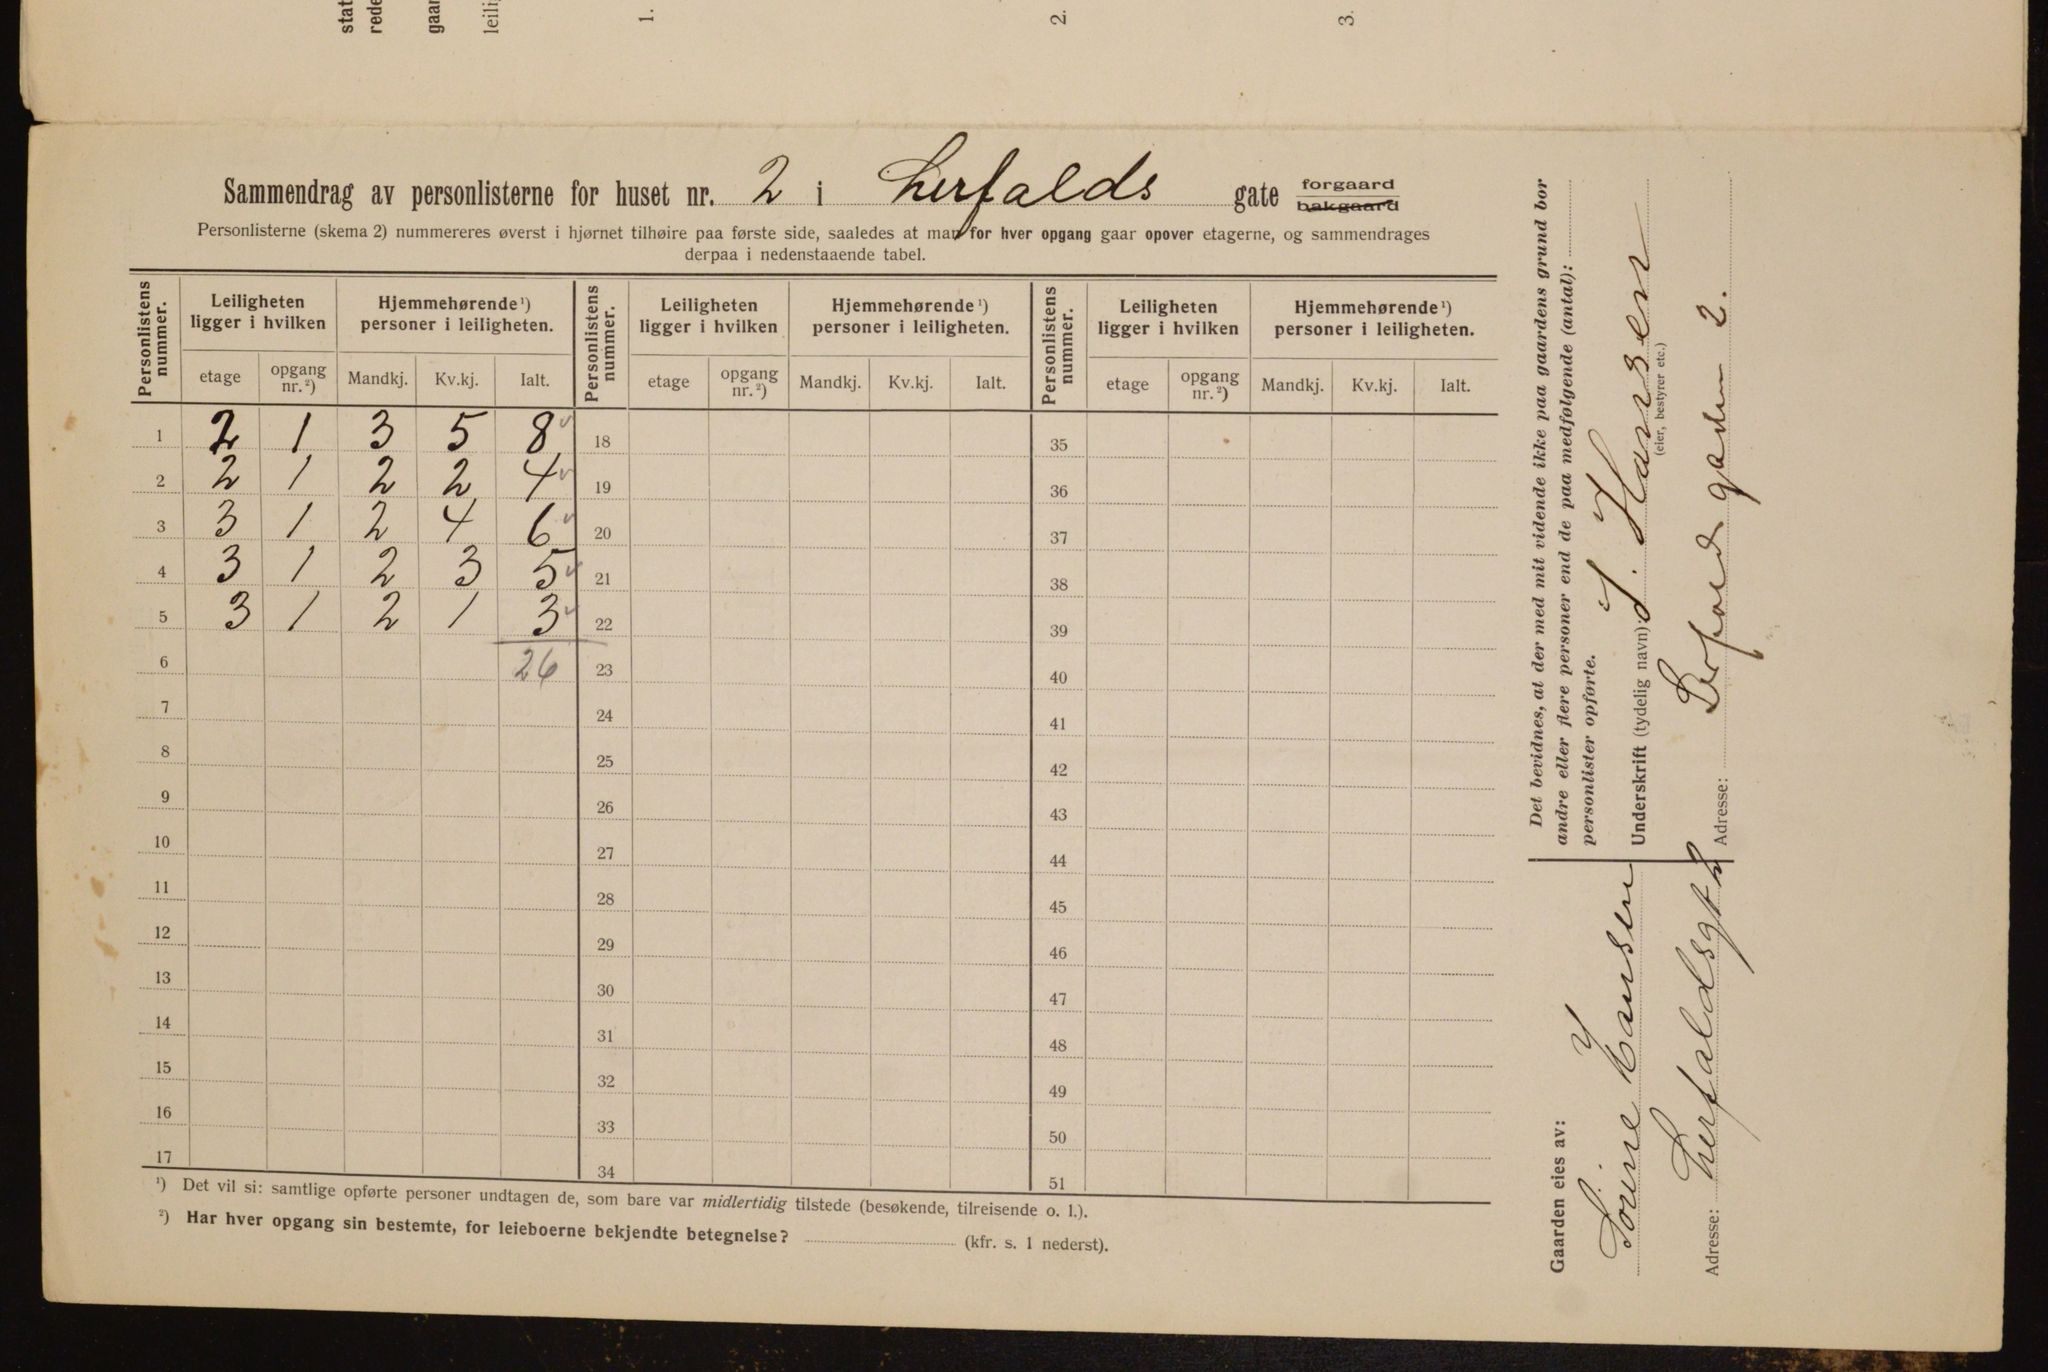 stat
rede
gaar
leilig
1.
2.
3.
Sammendrag av personlisterne for huset nr. 2 i Lerfalds gate forgaard
bakgaard
Personlisterne (skema 2) nummereres øverst i hjørnet tilhøire paa første side, saaledes at man for hver opgang gaar opover etagerne, og sammendrages
derpaa i nedenstaaende tabel.
Personlistens nummer. Leiligheten ligger i hvilken Hjemmehørende ¹) personer i leiligheten. Personlistens nummer. Leiligheten ligger i hvilken Hjemmehørende ¹) personer i leiligheten. Personlistens nummer. Leiligheten ligger i hvilken Hjemmehørende ¹) personer i leiligheten.
etage opgang nr. ²) Mandkj. Kv.kj. Ialt. etage opgang nr. ²) Mandkj. Kv.kj. Ialt. etage opgang nr. ²) Mandkj. Kv.kj. Ialt.
1 2 1 3 5 8 18 35
2 2 1 2 2 4 19 36
3 3 1 2 4 6 20 37
4 3 1 2 3 5 21 38
5 3 1 2 1 3 22 39
6 26 23 40
7 24 41
8 25 42
9 26 43
10 27 44
11 28 45
12 29 46
13 30 47
14 31 48
15 32 49
16 33 50
17 34 51
¹) Det vil si: samtlige opførte personer undtagen de, som bare var midlertidig tilstede (besøkende, tilreisende o. l.).
²) Har hver opgang sin bestemte, for leieboerne bekjendte betegnelse? (kfr. s. 1 nederst).
Gaarden eies av:
Hansen
Adresse: Lerfaldsgt 2
Det bevidnes, at der med mit vidende ikke paa gaardens grund bor
andre eller flere personer end de paa medfølgende (antal):
personlister opførte.
Underskrift (tydelig navn): S. Hansen
(eier, bestyrer etc.)
Adresse: Lerfolds gaden 2.